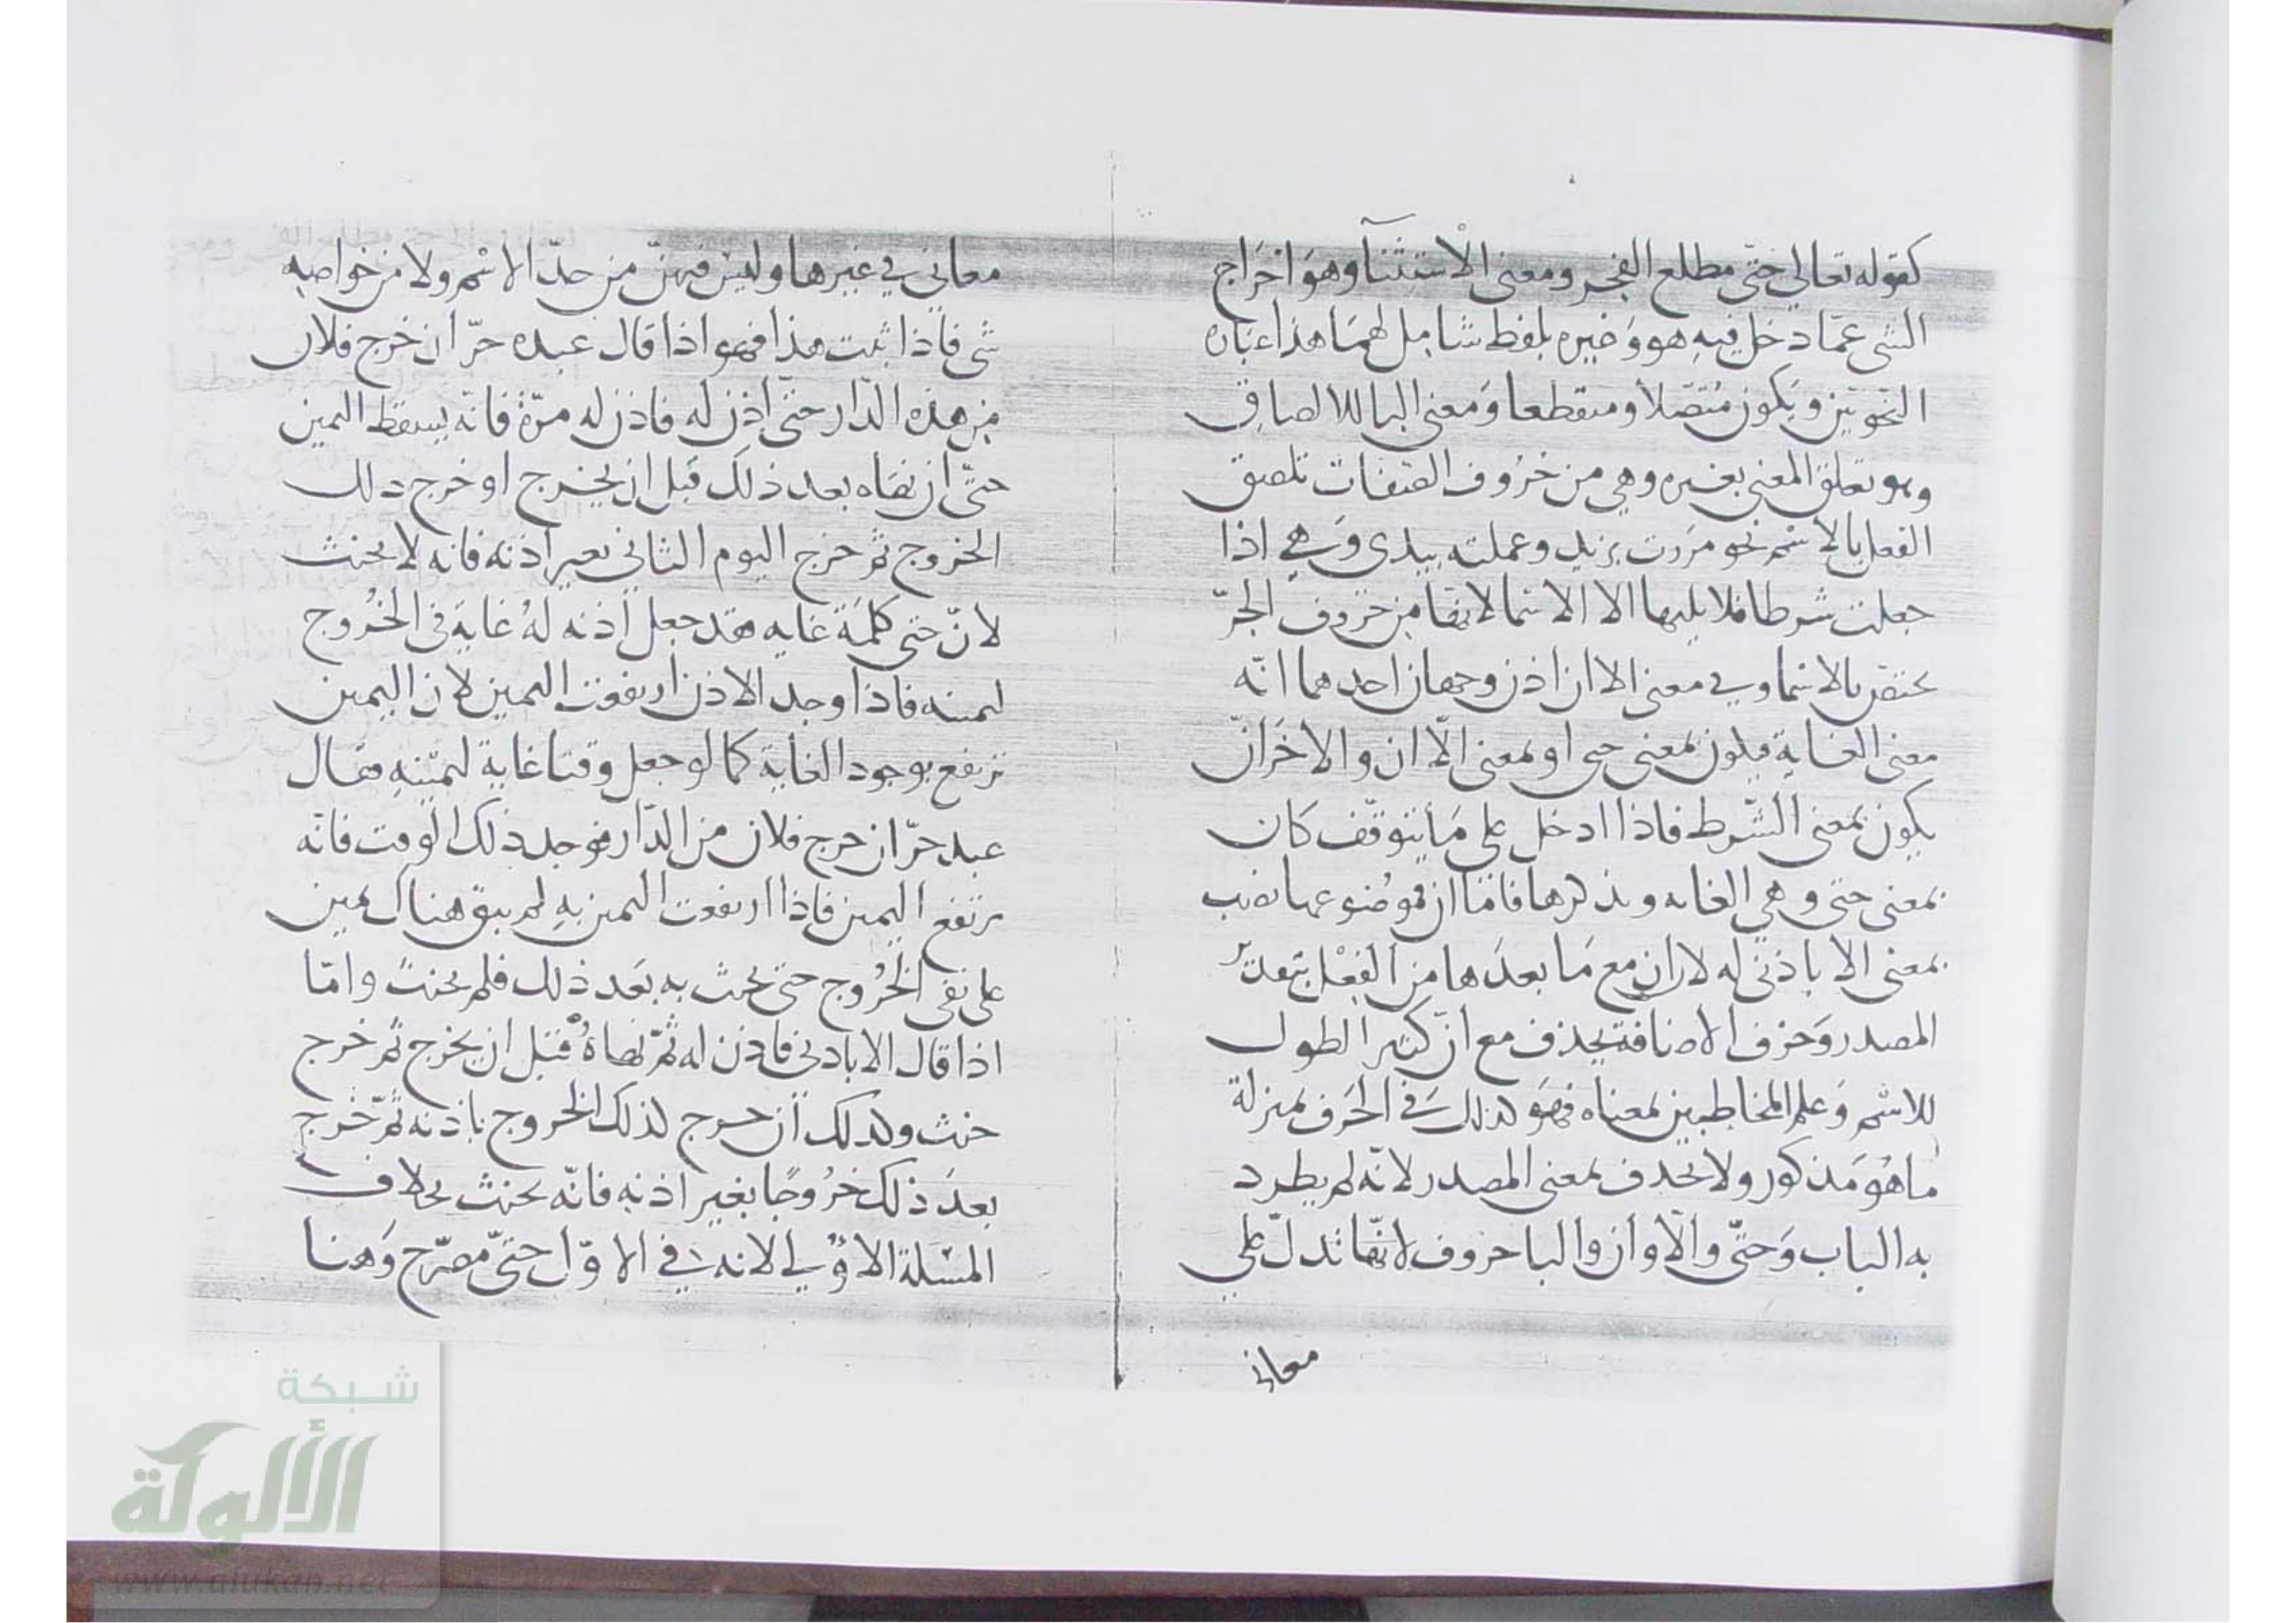 كقوله تعالى حتّى مطلع الفجر ومعنى الاستثنآ وهو اخراج
الشى عمّا دخل فيه هو وغيره بلفظ شامل لهما هذا عبارة
النحويّين ويكون متّصلا ومنقطعا ومعنى البا للالصاق
وهو تعلق المعنى بغيره وهي من حروف الصفات تلصق
الفعل بالاسم نحو مررت بزيد وعملته بيدى وهي اذا
جعلت شرطا فلا يليها الا الاسما لانها من حروف الجرّ
يختص بالاسما وفي معنى الا ان اذن وجهان احدهما انّه
معنى الغاية فيكون بمعنى حتى او بمعنى الّا ان والاخر انّ
يكون بمعنى الشّرط فاذا ادخل على ما يتوقّف كان
بمعنى حتى وهي الغايه ويذكرها فامّا ان فموضوعها نصب
بمعنى الا باذنى له لان ان مع ما بعدها من الفعل بتقدير
المصدر وحرف الاضافة يحذف مع ان كثيرا لطول
للاسم وعلم المخاطبين بمعناه فهو لذلك في الحرف بمنزلة
ما هو مذكور ولا يحذف بمعنى المصدر لانّه لم يطرد
به الباب وحتّى والّا وان والبا حروف لانّها تدلّ على
معاني
معاني في غيرها وليس فيهنّ من حدّ الاسم ولا من خواصه
شى فاذا ثبت هذا فهو اذا قال عبده حرّ ان خرج فلان
من هذه الدّار حتّى اذن له فاذن له مرّة فانّه يسقط اليمين
حتّى ان نهاه بعد ذلك قبل ان يخرج او خرج ذلك
الخروج ثم خرج اليوم الثاني بغير اذنه فانه لا يحنث
لانّ حتى كلمة غايه فقد جعل اذنه له غاية في الخروج
ليمينه فاذا وجد الاذن ارتفعت اليمين لان اليمين
ترتفع بوجود الغاية كما لو جعل وقتا غاية ليمينه فقال
عبد حرّ ان خرج فلان من الدّار فوجد ذلك الوقت فانّه
يرتفع اليمين فاذا ارتفعت اليمين به لم يبق هناك يمين
على نفى الخروج حتى يحنث به بعد ذلك فلم يحنث وامّا
اذا قال الا باذنى فاذن له ثمّ نهاه قبل ان يخرج ثم خرج
حنث وكذلك ان خرج لذلك الخروج باذنه ثمّ خرج
بعد ذلك خروجًا بغير اذنه فانّه يحنث بخلاف
المسئلة الاولى لانه في الاوّل حتىّ مصرّح وهنا
شبكة
الألوكة
www.alukah.net